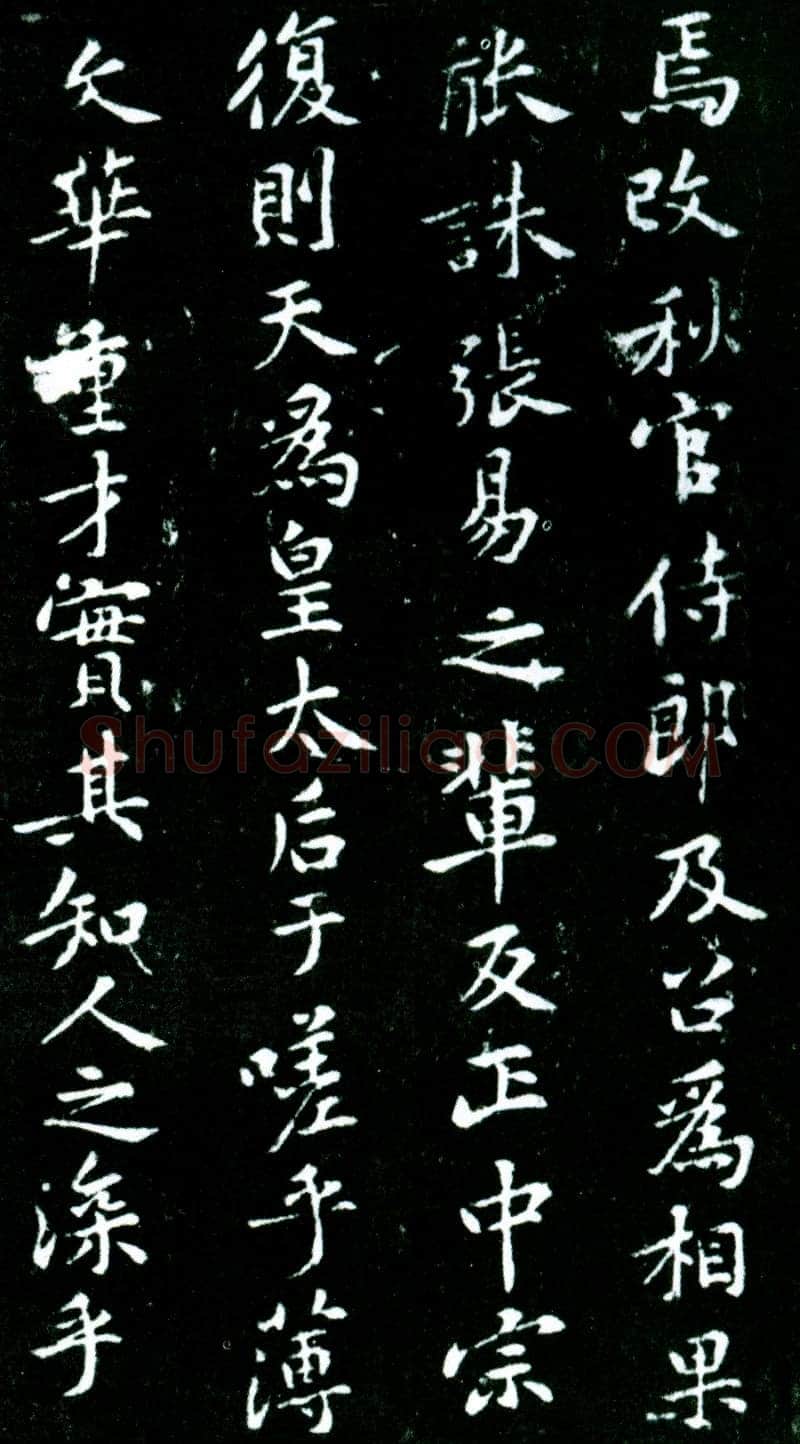 焉改秋官侍郎及召爲相果
能誅張易之輩反正中宗
復則天爲皇太后于嗟乎薄
文華重才實其知人之深乎
Shufaziliao.COM